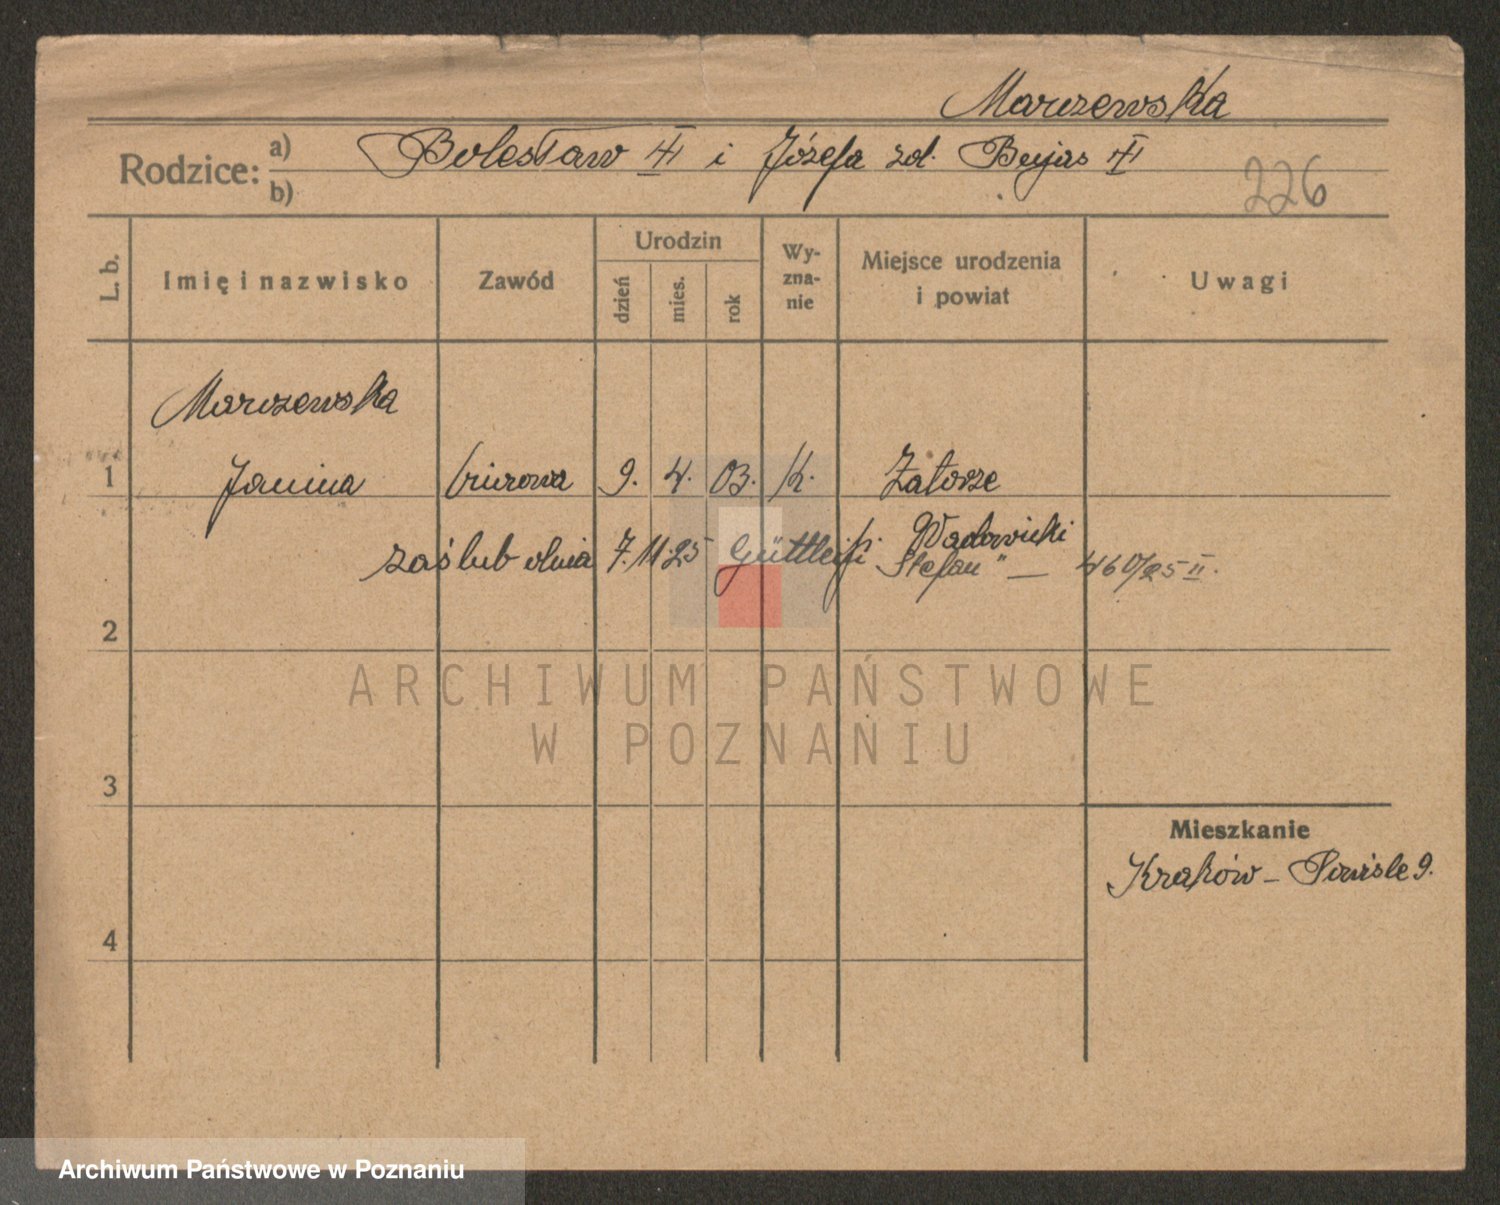 Marczewska
Rodzice: a) Bolesław i Józefa zd. Bujas
b)
226
L. b.
Imię i nazwisko
Zawód
Urodzin
dzień
mies.
rok
Wy-
zna-
nie
Miejsce urodzenia
i powiat
Uwagi
Marczewska
1 Janina biurowa 9. 4. 03. k. Zatorze
Wadowicki
zaślub dnia 7.11.25 Stefan" — 460/25 II.
2
ARCHIWUM PAŃSTWOWE
W POZNANIU
3
Mieszkanie
Kraków – Powiśle 9.
4
Archiwum Państwowe w Poznaniu